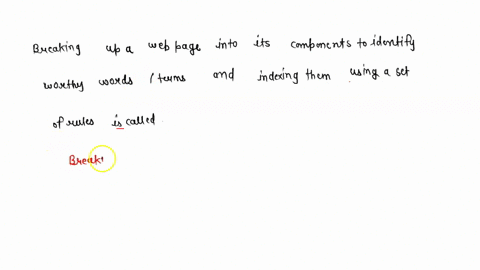 Breaking up a web page into its components to identify
worthy words / terms and indexing them using a set
of rules is called
Break